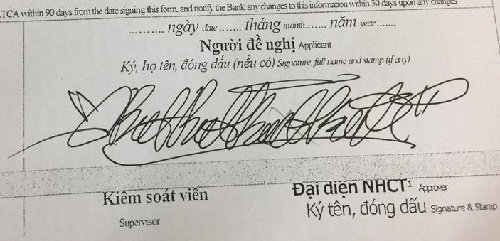 ATCA within 90 days from the date signing this form, and notify the Bank any changes to this information within 30 days upon any changes
.......... ngày date .......... tháng month ........ năm year ........
Người đề nghị Applicant
Ký, họ tên, đóng dấu (nếu có) Signature, full name and stamp (if any)
Kiểm soát viên
Supervisor
Đại diện NHCT Approver
Ký tên, đóng dấu Signature & Stamp